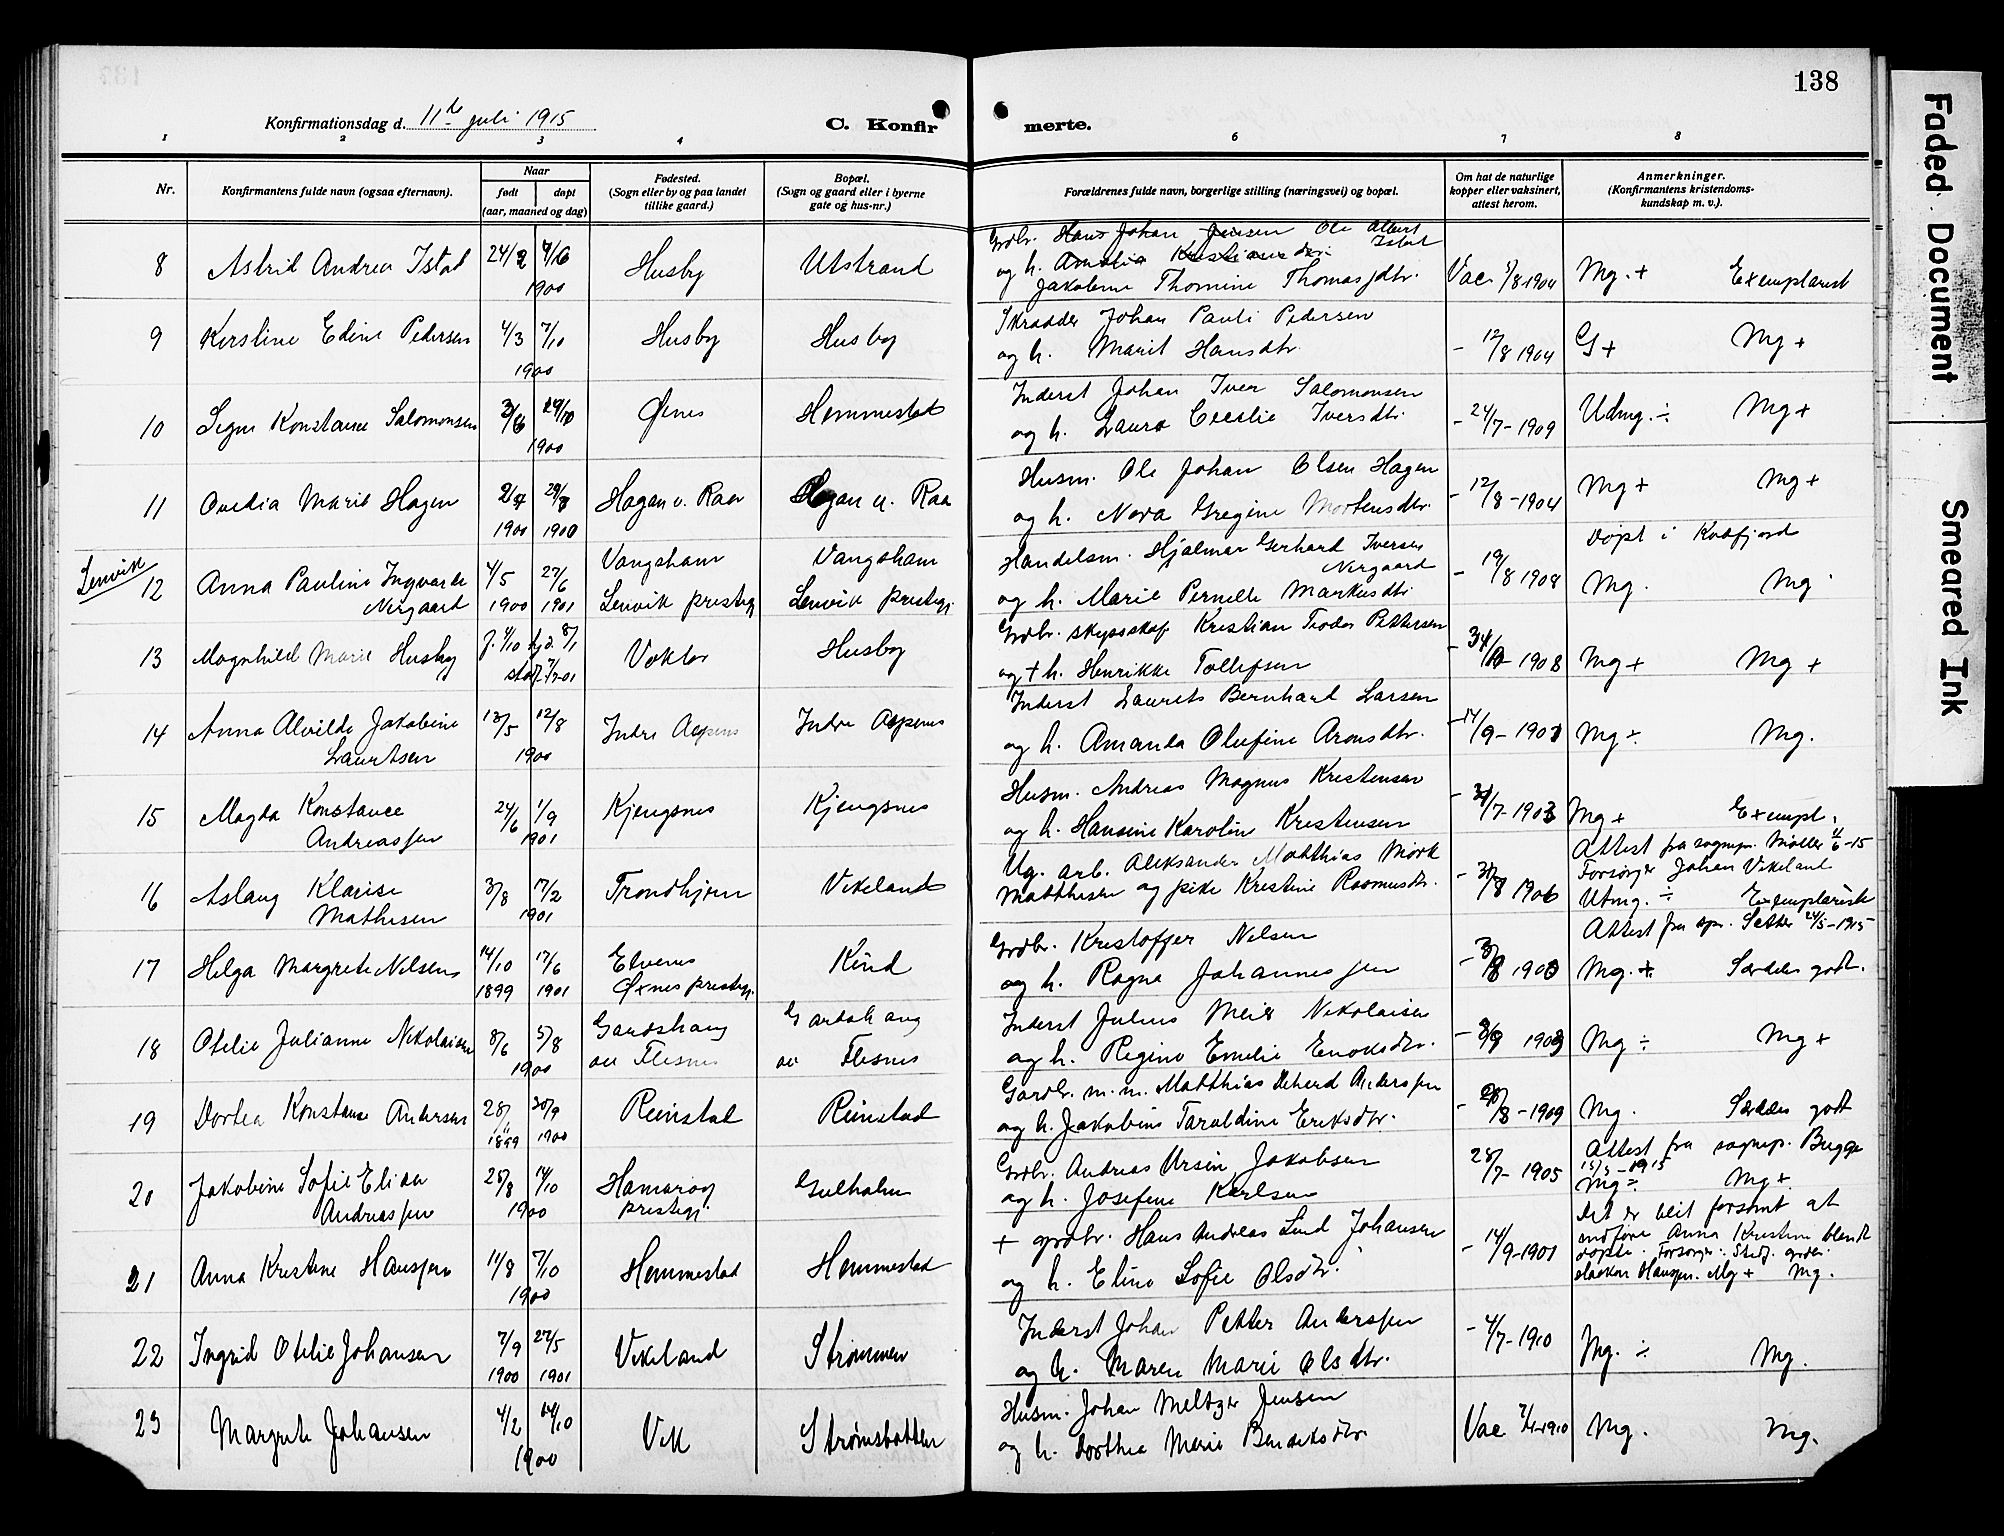 138
Konfirmationsdag d. 11te juli 1915
C. Konfirmerte.
1 2 3 4 6 7 8
Nr.
Konfirmantens fulde navn (ogsaa efternavn).
Naar
født
døpt
(aar, maaned og dag)
Fødested.
(Sogn eller by og paa landet
tillike gaard.)
Bopæl.
(Sogn og gaard eller i byerne
gate og hus-nr.)
Forældrenes fulde navn, borgerlige stilling (næringsvei) og bopæl.
Om hat de naturlige
kopper eller vaksinert,
attest herom.
Anmerkninger.
(Konfirmantens kristendoms-
kundskap m. v.).
8 Astrid Andrea Istad 24/2 1900 Husby Utstrand
Grdbr. Hans Johan Jensen Ole Albert Istad
og h. Amalia Kristiansdtr.
Jakobine Thomine Thomasdtr. Vac. /8 1904 Mg. + Exemplarisk
9 Kirstine Edine Pedersen 4/3 7/10 1900 Husby Husby
Skrædder Johan Pauli Pedersen
og h. Marit Hansdtr. - 12/8 1904 G + Mg +
10 Signe Konstanse Salomonsen 3/6 29/10 1900 Øines Hemmestad
Inderst Johan Iver Salomonsen
og h. Laura Cecelie Iversdtr. - 24/7-1909 Udmg. ÷ Mg +
11 Ovedia Marie Hagen 1900 1900 Hagan u. Raa Hagan u. Raa
Husm. Ole Johan Olsen Hagen
og h. Nora Gregine Mortensdtr. - 12/8-1904 Mg + Mg +
Døpt i Kvæfjord
Lenvik
12 Anna Pauline Ingvarda Nergaard 4/5 1900 27/6 1901
Vangsham Lenvik prestegj. Vangsham Lenvik prestegj.
Handelsm. Hjalmar Gerhard Iversen Nergaard
og h. Marie Pernelle Markusdtr. - 19/8 1908 Mg. Mg.
13 Magnhild Marie Husby f. 4/10 hjd. 8/1 stad. 7/7 01 Vokter Husby
Grdbr. skyssskaf. Kristian Teodor Pettersen
og + h. Henrikke Tollefsen 1908 Mg + Mg +
14 Anna Alvilde Jakobine Lauritsen 13/5 12/8 1900 Indre Aspenes Indre Aspenes
Inderst Laurits Bernhard Larsen
og h. Amanda Olufine Aronsdtr. - 14/9-1901 Mg ÷ Mg.
15 Magda Konstance Andreassen 24/6 1/9 1901 Kjengsnes Kjengsnes
Husm. Andreas Magnus Kristensen
og h. Hansine Karolin Kristensen /7-1903 Mg + Exempl.
16 Aslaug Klarise Mathisen 3/8 17/2 1901 Trondhjem Vikeland
Ug. arb. Aleksander Matthias Mørk
Matthisen og pike Kristine Rasmusdtr. /8 1906
Attest fra sognepr. Møller 4/6-15
Forsørger Johan Vikeland
Utmg. ÷ Exemplarisk
17 Helga Margrete Nilsen 14/10 1899 17/6 1901 Elvenes Øxnes prestegj. Kind
Grdbr. Kristoffer Nilsen
og h. Ragna Johannessen
Attest fra spr. Sæther 24/5-1915
Mg. + Særdeles godt.
18 Otelie Julianne Nikolaisen 8/6 5/8 1900 Gaardshaug av Flesnes Gardshaug av Flesnes
Inderst Julius Meier Nikolaisen
og h. Regine Emelie Enoksdtr. Mg ÷ Mg +
19 Dortea Konstanse Andersen 28/11 1899 30/9 1900 Reinstad Reinstad
Gardbr. m.m. Matthias Andersen
og h. Jakobine Taraldine Eriksdtr. /8-1909 Mg. Særdeles godt
20 Jakobine Sofie Elida Andreassen 25/8 14/10 1900 Hamarøy prestegj. Gulholm
Grdbr. Andreas Ursin Jakobsen
og h. Josefine Karlsen 28/7-1905
Attest fra sognepr. Bugge
15/5-1915
Mg ÷ Mg +
21 Anna Kristine Hanssen 11/8 7/10 1900 Hemmestad Hemmestad
+ grdbr. Hans Andreas Lind Johansen
og h. Eline Sofie Olsdtr. - 14/9-1901
Det er bleit forsømt at
indføre Anna Kristine blandt
døpte. Forsørger: Stedf. grdbr.
Haakon Hanssen. Mg + Mg.
22 Ingrid Otelie Johansen 7/9 1900 27/5 1901 Vikeland Strømmen
Inderst Johan Petter Anderssen
og h. Maren Marie Olsdtr. - 4/7-1910 Mg. ÷ Mg.
23 Margrete Johansen 4/2 14/10 1900 Vik Strømsbotten
Husm. Johan Meltzer Jensen
og h. Dorthea Marie Bendiksdtr. Vac 1910 Mg. Mg.
Faded Document
Smeared Ink